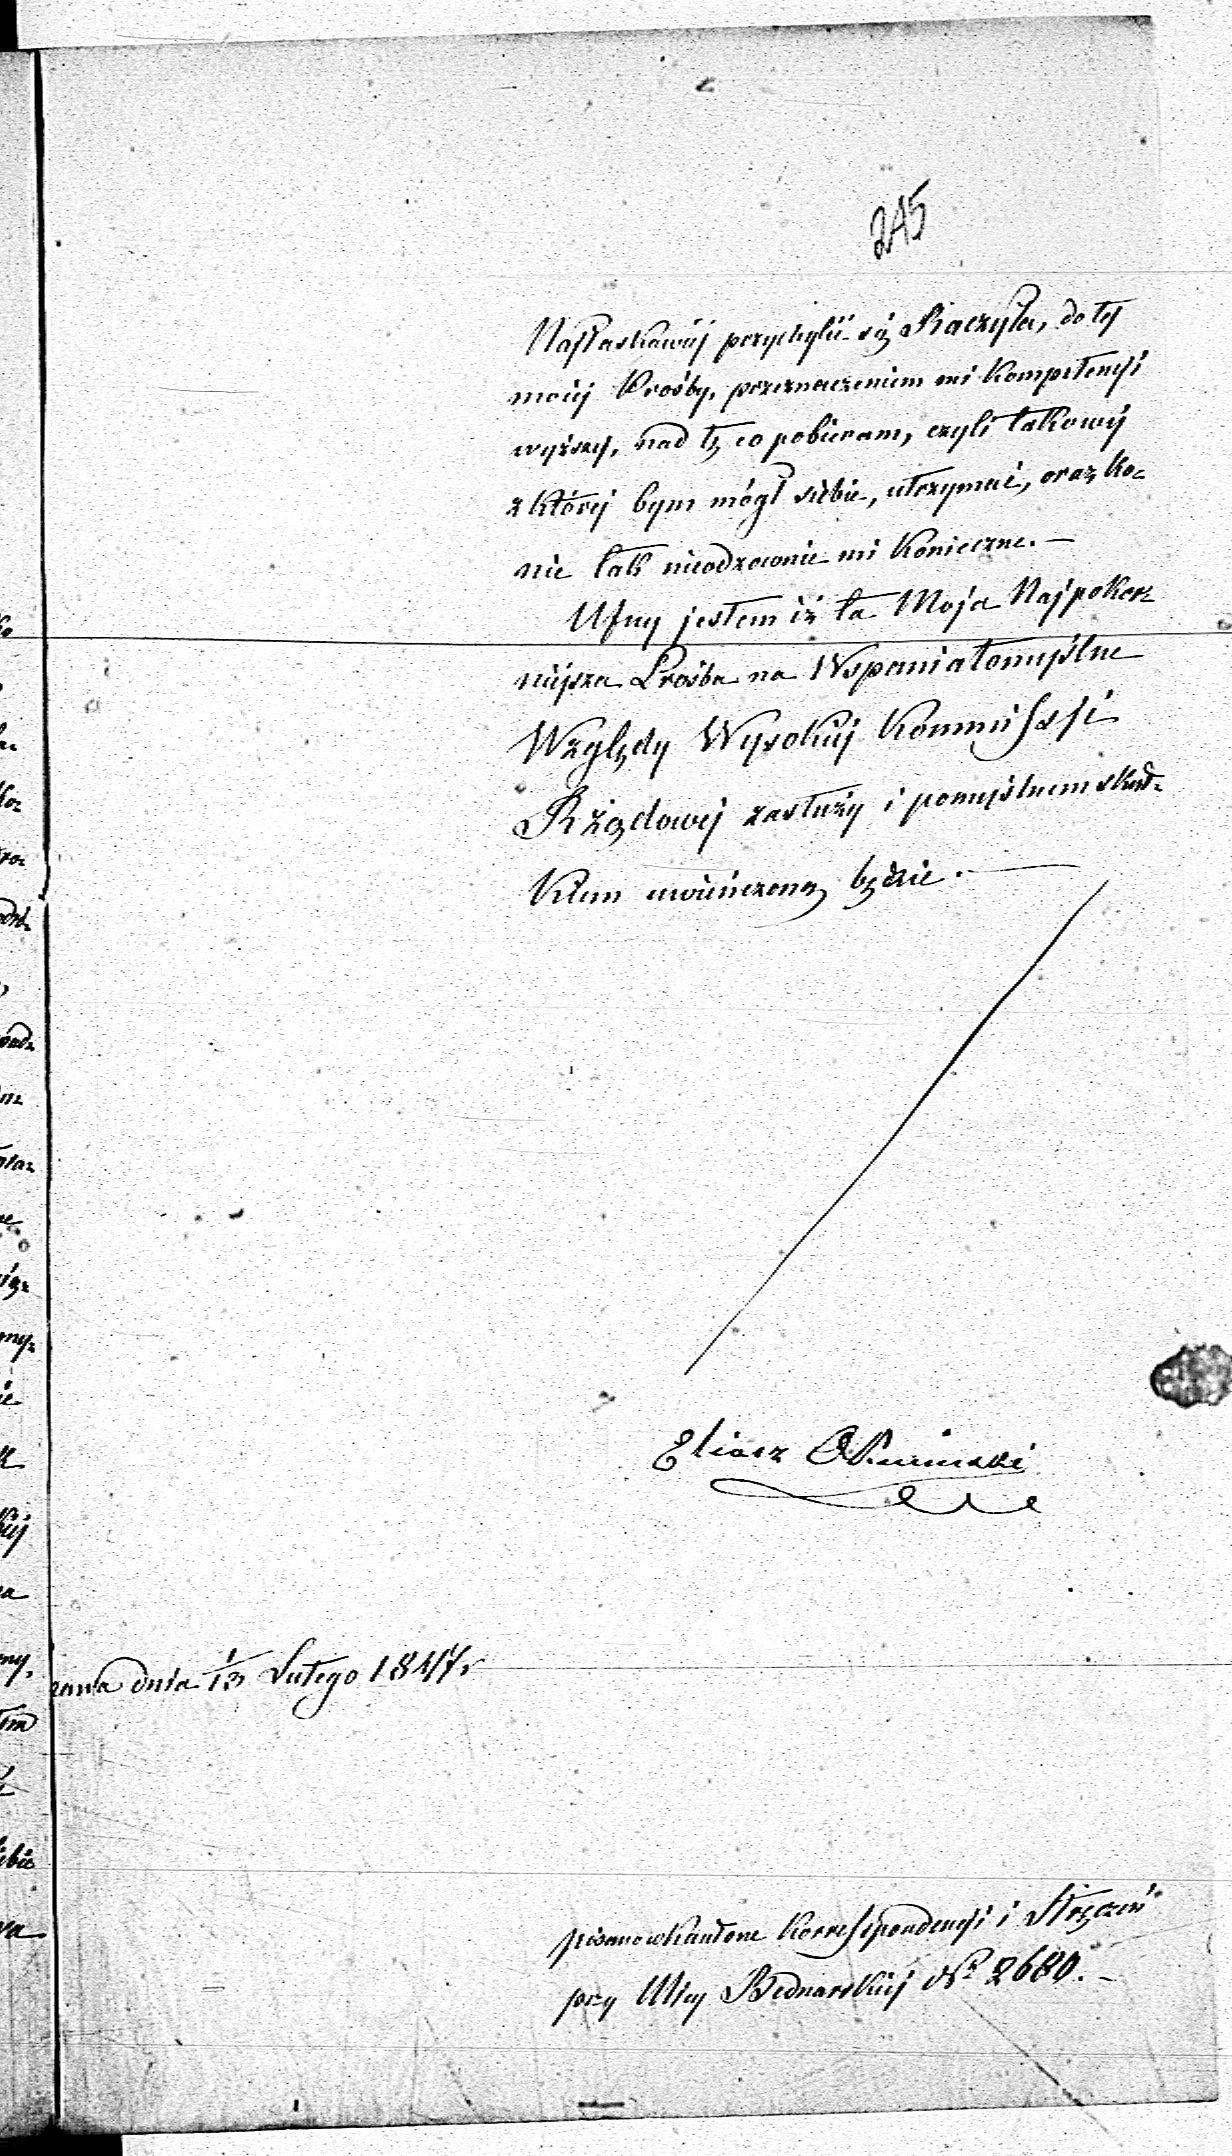 245
Najłaskawiéj przychylić się Raczyła, do téj
moiéj Prośby, przeznaczeniem mi Kompetencyi
wyższéj, nad tę co pobieram, czyli takowéj
z któréj bym mógł siebie, utrzymać, oraz ko-
nie tak nieodzownie mi konieczne. —
Ufny jestem iż ta Moja Najpokor-
niejsza Prośba na Wspaniałomyślne
Względy Wysokiéj Kommissyi
Rządowéj zasłuży i pomyślnem skut-
kiem uwieńczoną będzie. —
Eliasz
dnia 1/13 Lutego 1847 r
pisano w Kantorze Korrespondencyi i Stręczeń
przy Ulicy Bednarskiéj Nº 2680. —